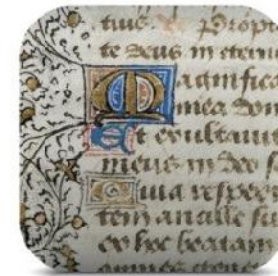 tius. Propt
te deus in etern
Magnifica
mea dom
Et exultauit
meus in deo s
Quia respex
tem ancille su
ex hoc beatam
omnes genera